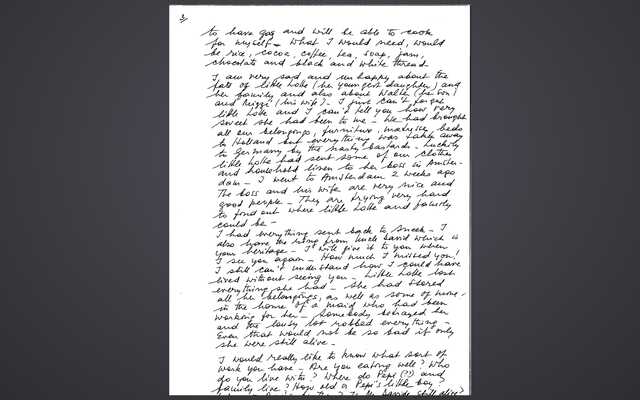 3/
to have gas and will be able to cook
for myself - What I would need, would
be rice, cocoa, coffee, tea, soap, jam,
chocolate and black and white thread.
I am very sad and unhappy about the
fate of little Lotte (her youngest daughter) and
her family and also about Walter (her son)
and (his wife) - I just can't forget
little Lotte and I can't tell you how very
sweet she had been to me - We had brought
all our belongings, furniture, matresses, beds
to Holland but everything was taken away
to Germany by the nasty bastards - Luckily
little Lotte had sent some of our clothes
and household linen to her boss in Amster-
dam - I went to Amsterdam 2 weeks ago
The boss and his wife are very nice and
good people - They are trying very hard
to find out where little Lotte and family
could be -
I had everything sent back to Sneek - I
also have the ring from Uncle David which is
your heritage - I will give it to you when
I see you again - How much I missed you!
I still can't understand how I could have
lived without seeing you - Little Lotte lost
everything she had - She had stored
all her belongings, as well as some of mine -
in the home of a maid who had been
working for her - Somebody betrayed her
and the lousy lot robbed everything -
Even that would not be so bad if only
she were still alive -
I would really like to know what sort of
work you have - Are you eating well? Who
do you live with? Where do Pepi (??) and
family live? How old is Pepi's little boy?
still alive?